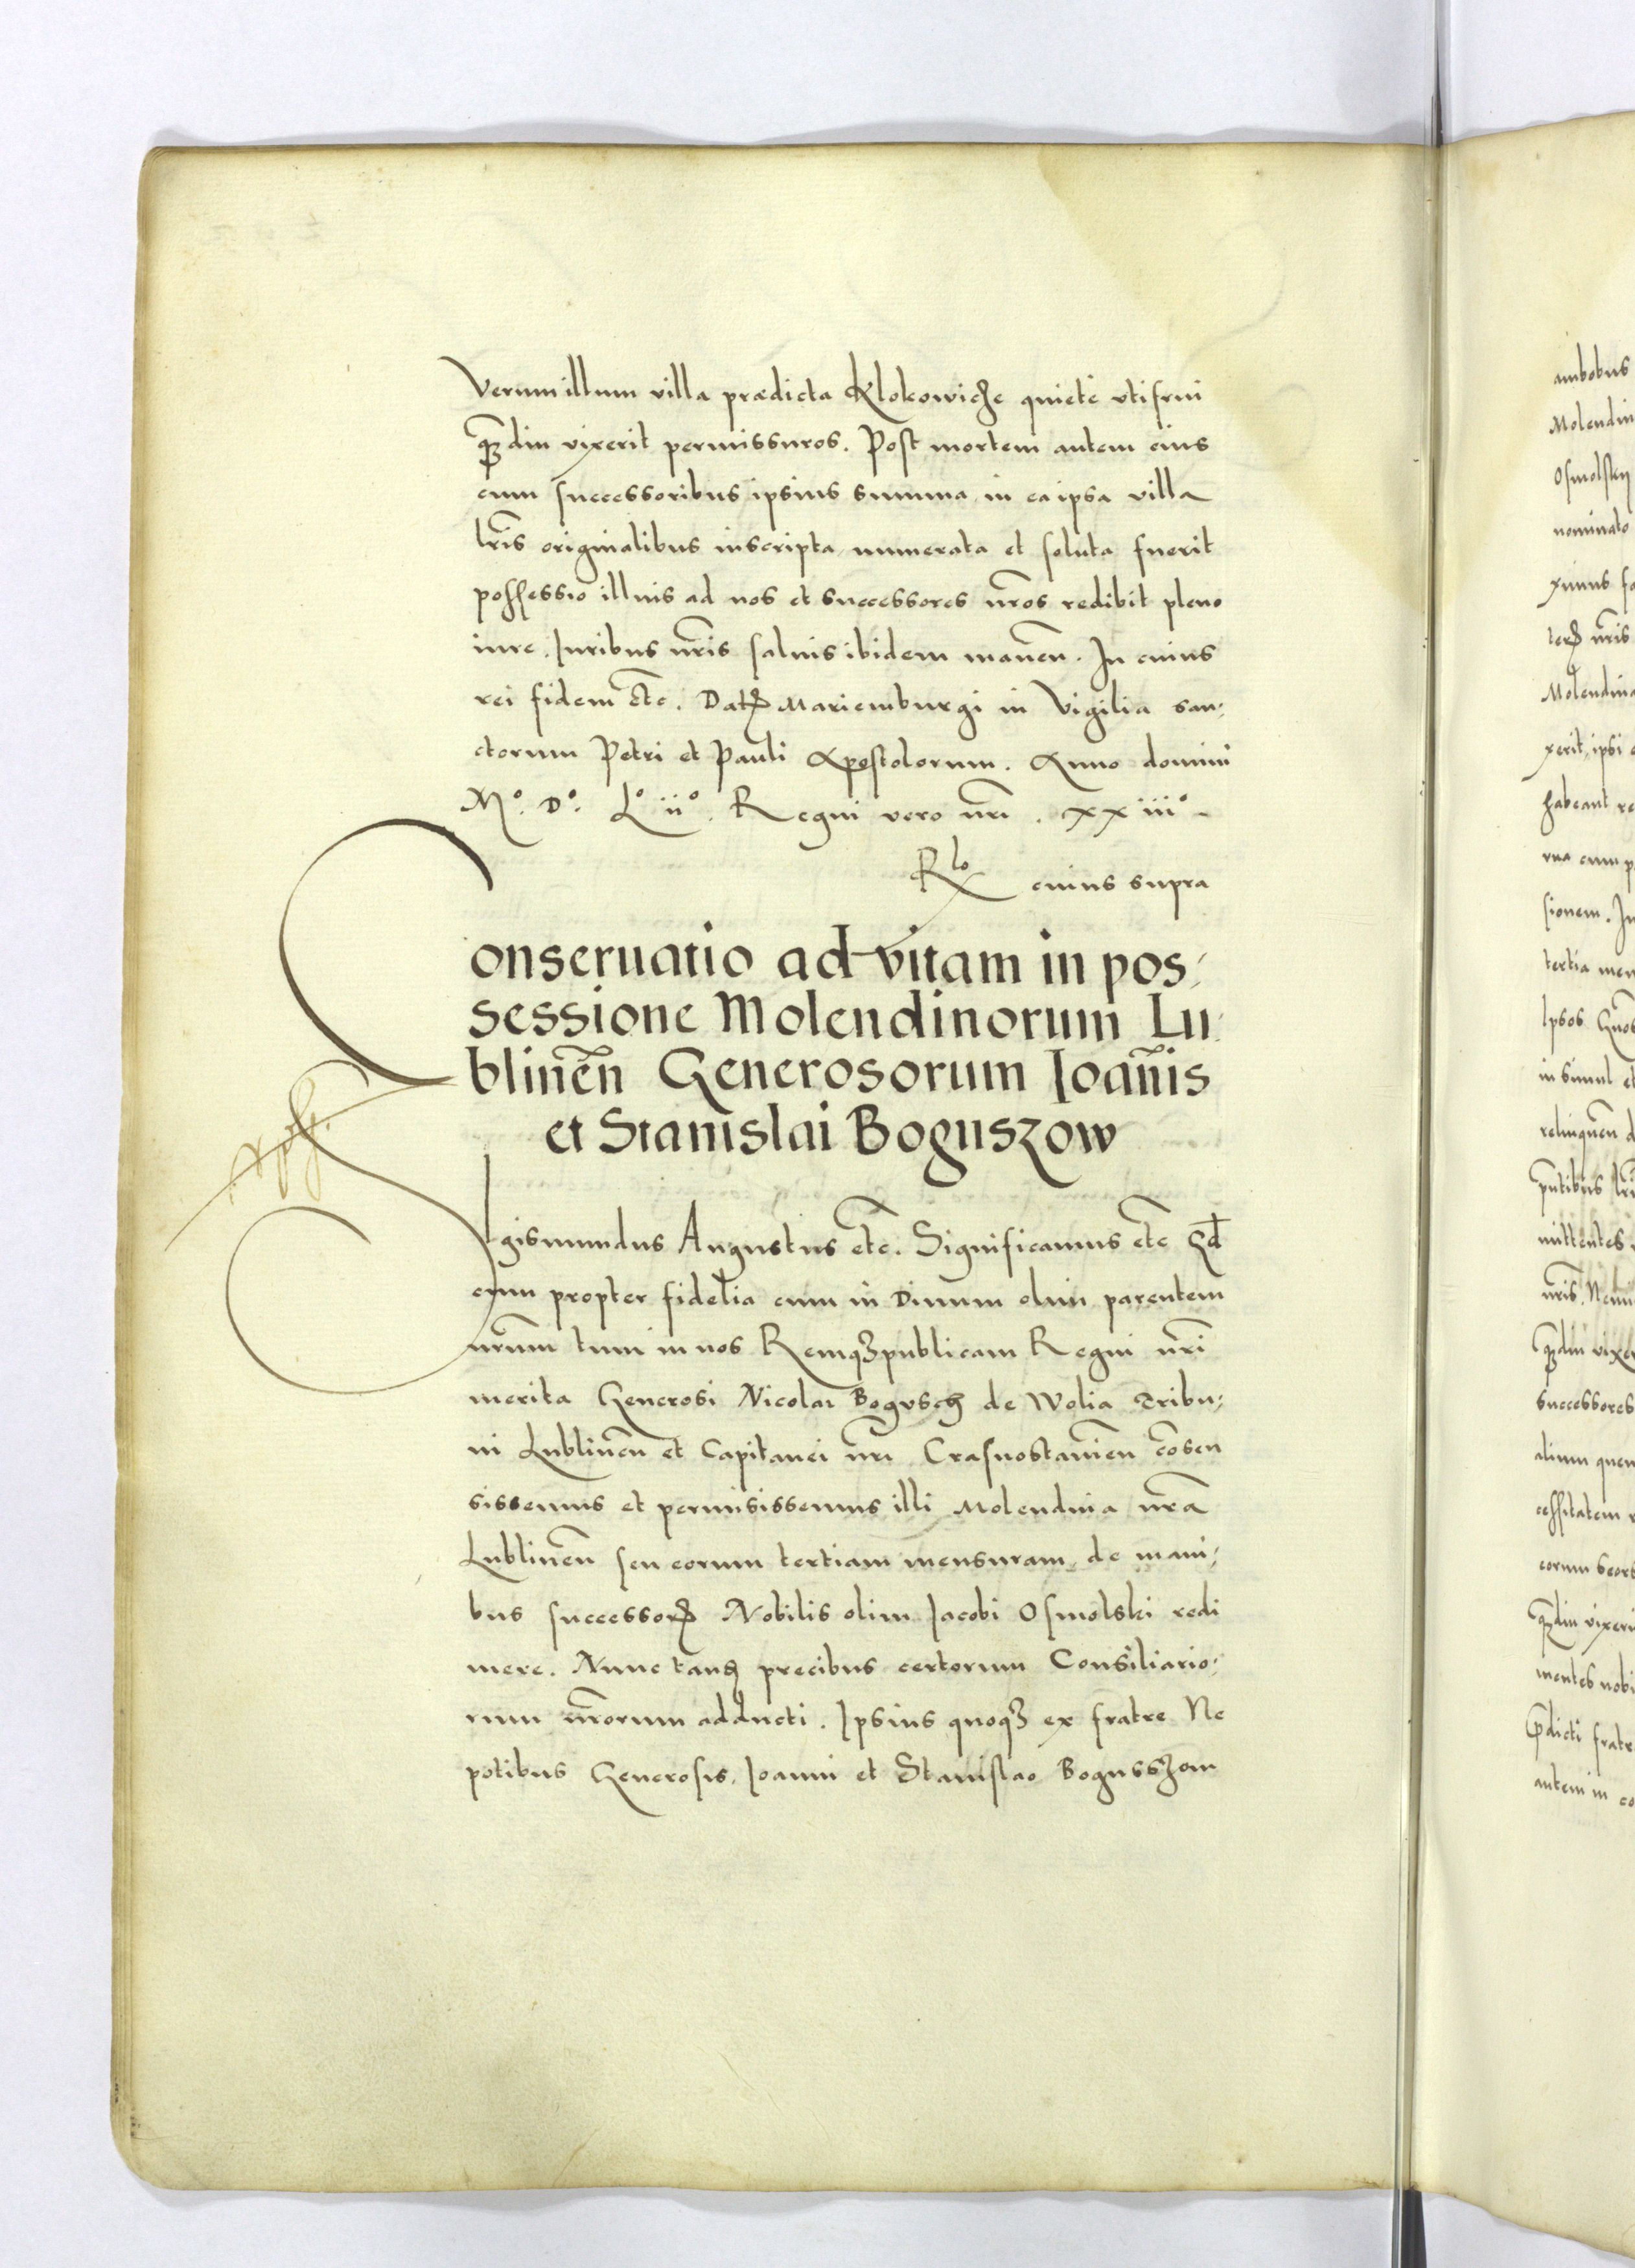 Verum illum villa prædicta Klokowicze quiete vtifrui
qȝdiu vixerit permissuros. Post mortem autem eius
cum successoribus ipsius summa in ea ipsa villa
lr̃is originalibus inscripta numerata et soluta fuerit
possessio illius ad nos et successores nr̃os redibit pleno
iure. Iuribus nr̃is saluis ibidem maneñ. In cuius
rei fidem etc̃. Datꝝ Mariemburgi in Vigilia san,
ctorum Petri et Pauli Apostolorum. Anno domini
Mº. Dº. Lº iiº. Regni vero nr̃i. xxiiiº.
Rlo cuius supra
Conseruatio ad vitam in pos,
sessione Molendinorum Lu,
blineñ Generosorum Ioañis
et Stanislai Boguszow
Sigismundus Augustus etc̃. Significamus etc̃ Qđ
cum propter fidelia cum in Diuum olim parentem
nr̃um tum in nos Remqȝpublicam Regni nr̃i
merita Generosi Nicolai Bogusch de Wolia Tribu,
ni Lublineñ et Capitanei nr̃i Crasnostawieñ cõsen
sissemus et permisissemus illi Molendina nr̃a
Lublineñ seu eorum tertiam mensuram de mani,
bus successoꝝ Nobilis olim Iacobi Osmolski redi
mere. Nunc tañ precibus certorum Consiliario,
rum nr̃orum adducti. Ipsius quoqȝ ex fratre Ne
potibus Generosis, Ioanni et Stanislao Bogusszom
ambobus
Molendin
nominato
terꝝ nr̃is
Molendina
xerit, ipsi
habeant re
rua cum p
sionem. In
tertia men
Ipsos
insimul et
relinqueñ d
mittentes
qȝdiu vixer
successores
alium quem
cessitatem
eorum seors
qȝdiu vixeri
mentes nobi
p̃dicti fratr
autem in co